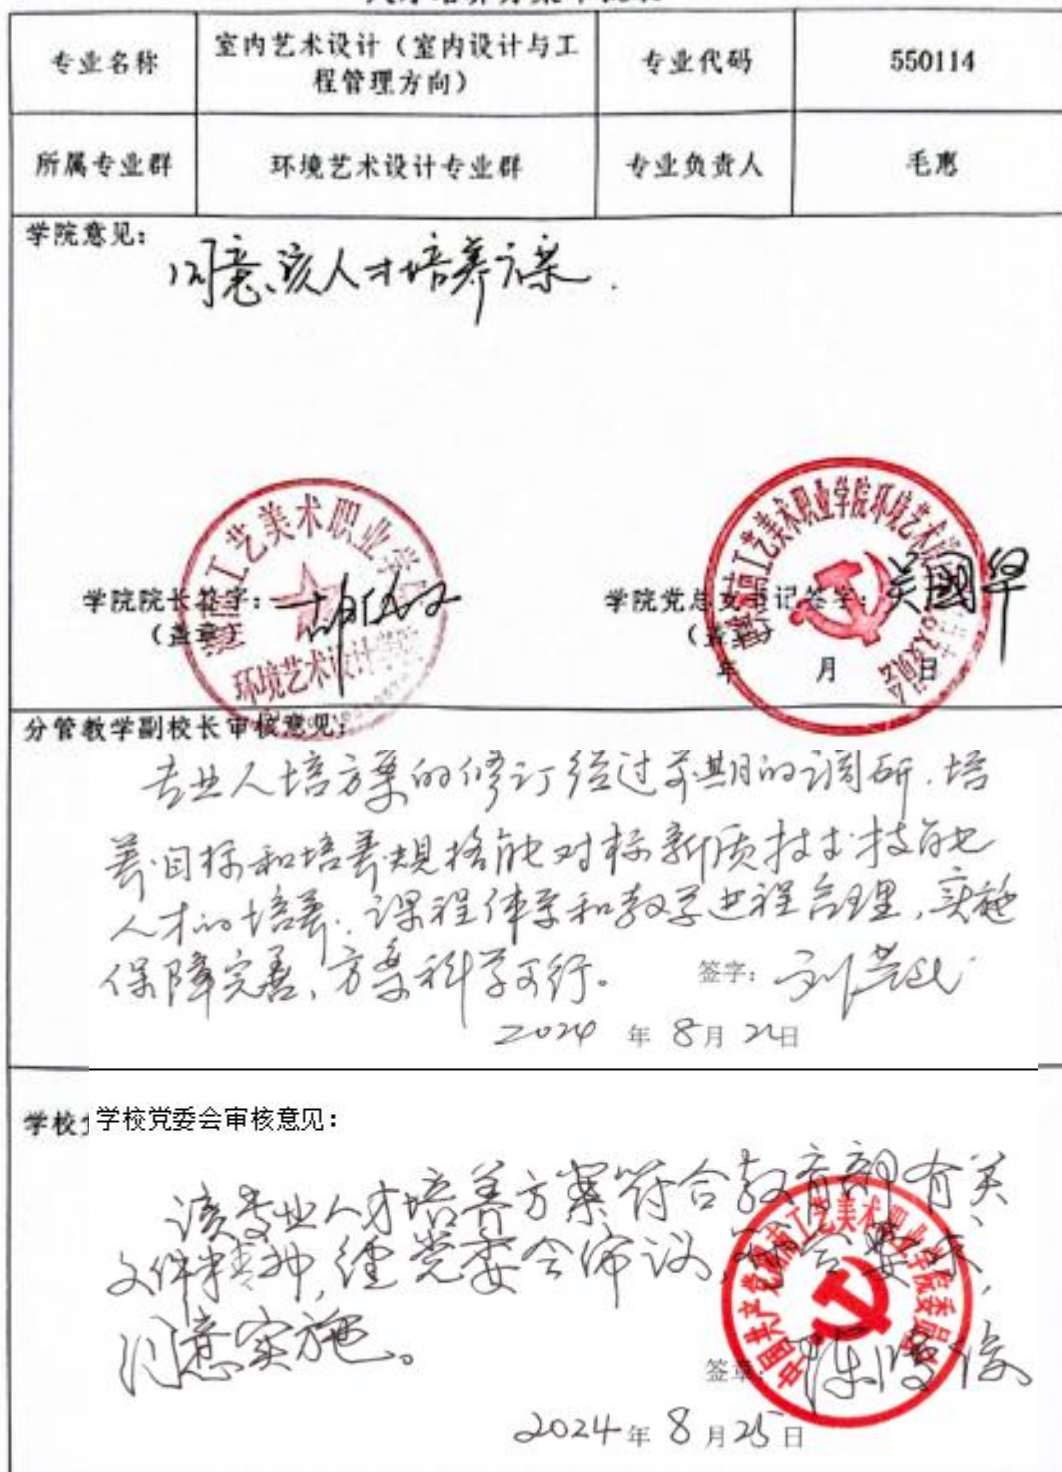 专业名称
室内艺术设计（室内设计与工
程管理方向）
专业代码
550114
所属专业群
环境艺术设计专业群
专业负责人
毛惠
学院意见：
同意该人才培养方案.
工艺美术职业学
环境艺术设计学院
学院院长签字：
（盖章）
工艺美术职业学院环境艺术
学院党总支书记签字：
年 月 日
分管教学副校长审核意见：
专业人培方案的修订经过前期的调研.培
养目标和培养规格能对标新质技术技能
人才的培养.课程体系和教学进程合理,实施
保障完善、方案科学可行。
签字：
2024 年 8月 日
学校
学校党委会审核意见：
该专业人才培养方案符合教育部有关
文件精神,经党委会审议,符合要求,
同意实施。
中国共产党湖南工艺美术职业学院委员会
签章：
2024年 8 月25日